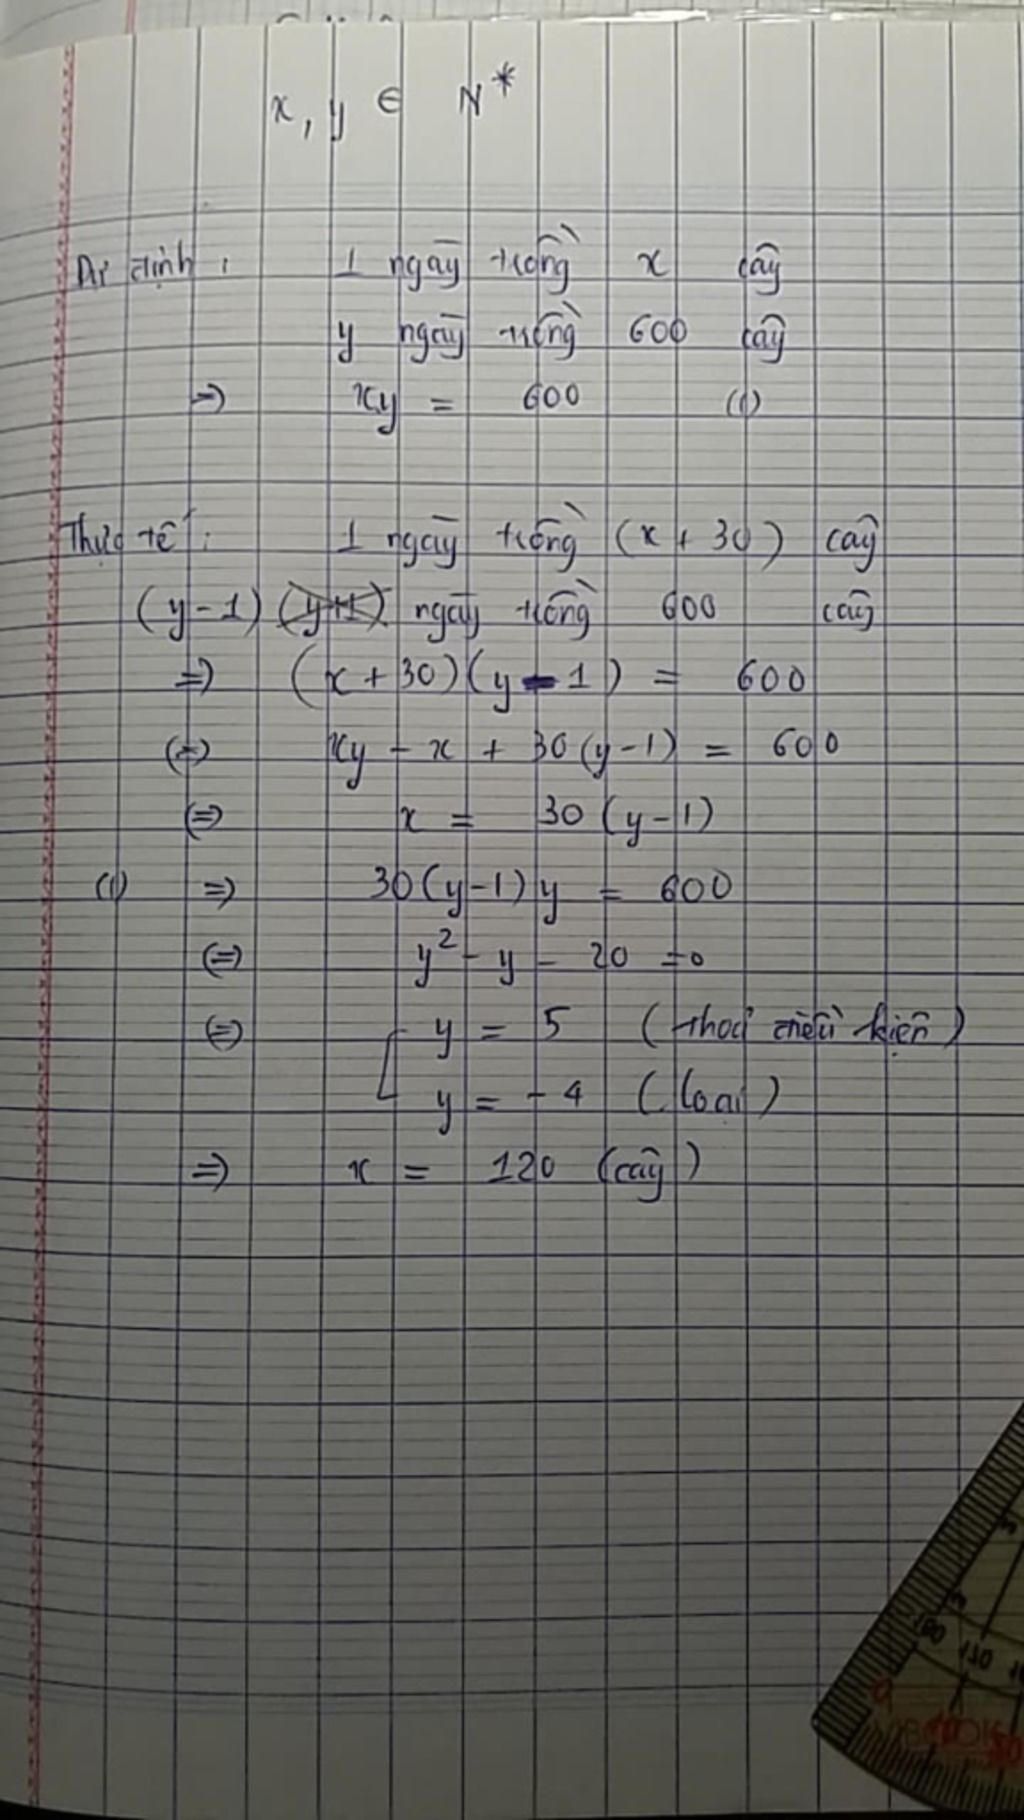 x, y ∈ N*
Dự định : 1 ngày trồng x cây
y ngày trồng 600 cây
=> xy = 600 (1)
Thực tế : 1 ngày trồng (x + 30) cây
(y - 1) (y+1) ngày trồng 600 cây
=> (x + 30)(y - 1) = 600
(=) xy - x + 30(y-1) = 600
(=) x = 30(y-1)
(1) => 30(y-1)y = 600
(=) y² - y - 20 = 0
(=) [ y = 5 (thoả điều kiện)
y = -4 (loại)
=> x = 120 (cây)
180
170
0